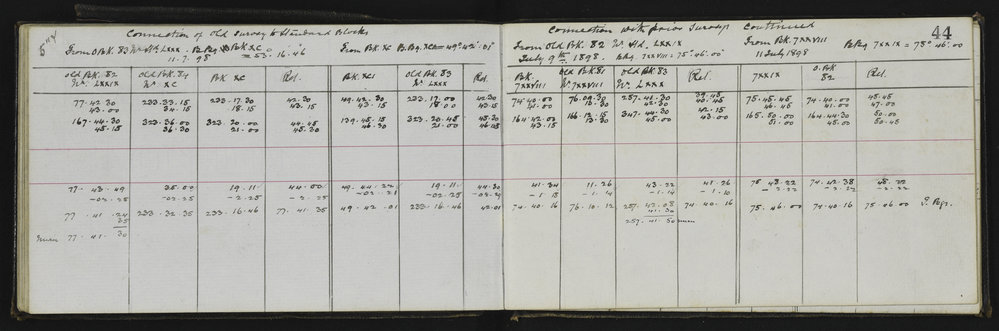 Connection of Old Survey to Standard Blocks
From O Bk. 83 Wn Stn LXXX . B Brg Bk XC
11.7.98 = 53.16.46
From Bk XC B Brg XCI = 49° 42' 01"
Old Bk. 82 Old Bk. 84 Bk XC Rel. Bk. XCI Old Bk. 83 Rel.
Wn LXXIX Wn XC Wn LXXX
77.42.30 233.33.15 233.17.30 42.30 49.42.30 233.17.00 42.30
43.00 34.15 18.15 43.15 43.15 18.00 43.15
167.44.30 323.36.00 323.20.00 44.45 139.45.15 323.20.45 45.30
45.15 36.30 21.00 45.30 46.30 21.00 46.15
77.43.49 35.00 19.11 44.00 49.44.22 19.11 44.30
-02.25 -02.25 -2.25 -2.25 -02.21 -02.25 -02.29
77.41.24 233.32.35 233.16.46 77.41.35 49.42.01 233.16.46 42.01
35
mean 77.41.30
44
Connection with prior Surveys Continued
From Old Bk. 82 Wn Std LXXIX From Bk. 7XXVIII
July 9th 1898. B Brg 7XXVIII = 75°.46'.00 11 July 1898 B Brg 7XXIX = 75°.46'.00
Bk. Old Bk. 81 Old Bk. 83 Rel. 7XXIX O. Bk. Rel.
7XXVIII Wn 7XXVIII Wn LXXX 82
74.40.00 76.09.30 257.41.30 39.45 75.45.45 74.40.00 45.45
41.00 13.30 42.30 40.45 46.45 41.00 47.00
164.42.00 166.13.15 347.44.30 42.15 165.50.00 164.44.30 50.00
43.15 13.30 45.00 43.00 51.00 45.00 50.45
41.34 11.26 43.22 41.26 75.48.22 74.42.38 48.22
-1.18 -1.14 -1.14 -1.10 -2.22 -2.22 -2.22
74.40.16 76.10.12 257.42.08 74.40.16 75.46.00 74.40.16 75.46.00
41.30
257.41.50 mean